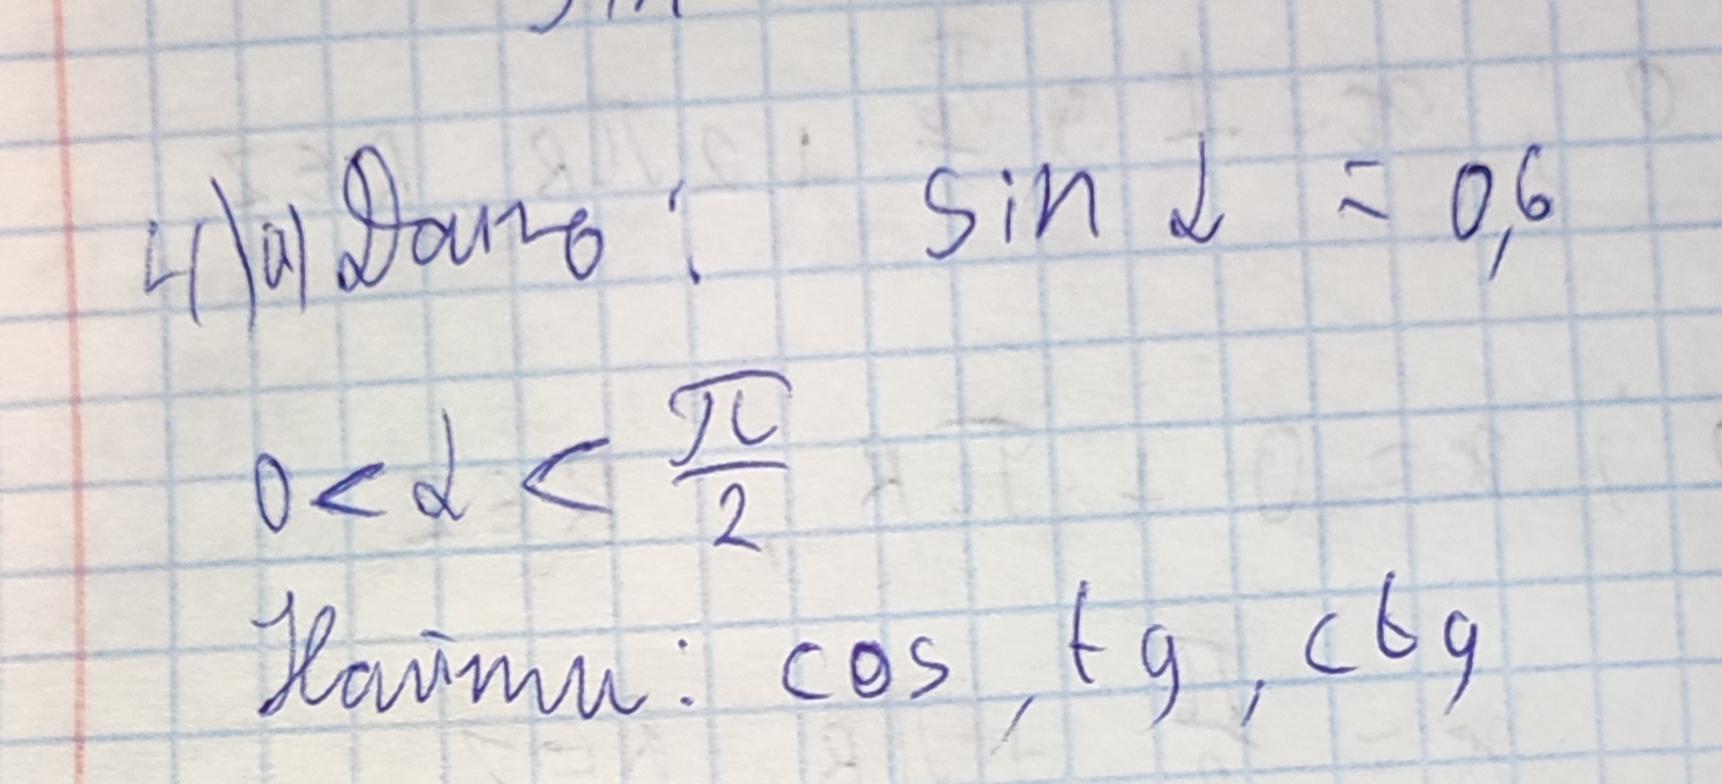 sin
4) а) Дано: sin α = 0,6
0 < α < π/2
Найти: cos, tg, ctg